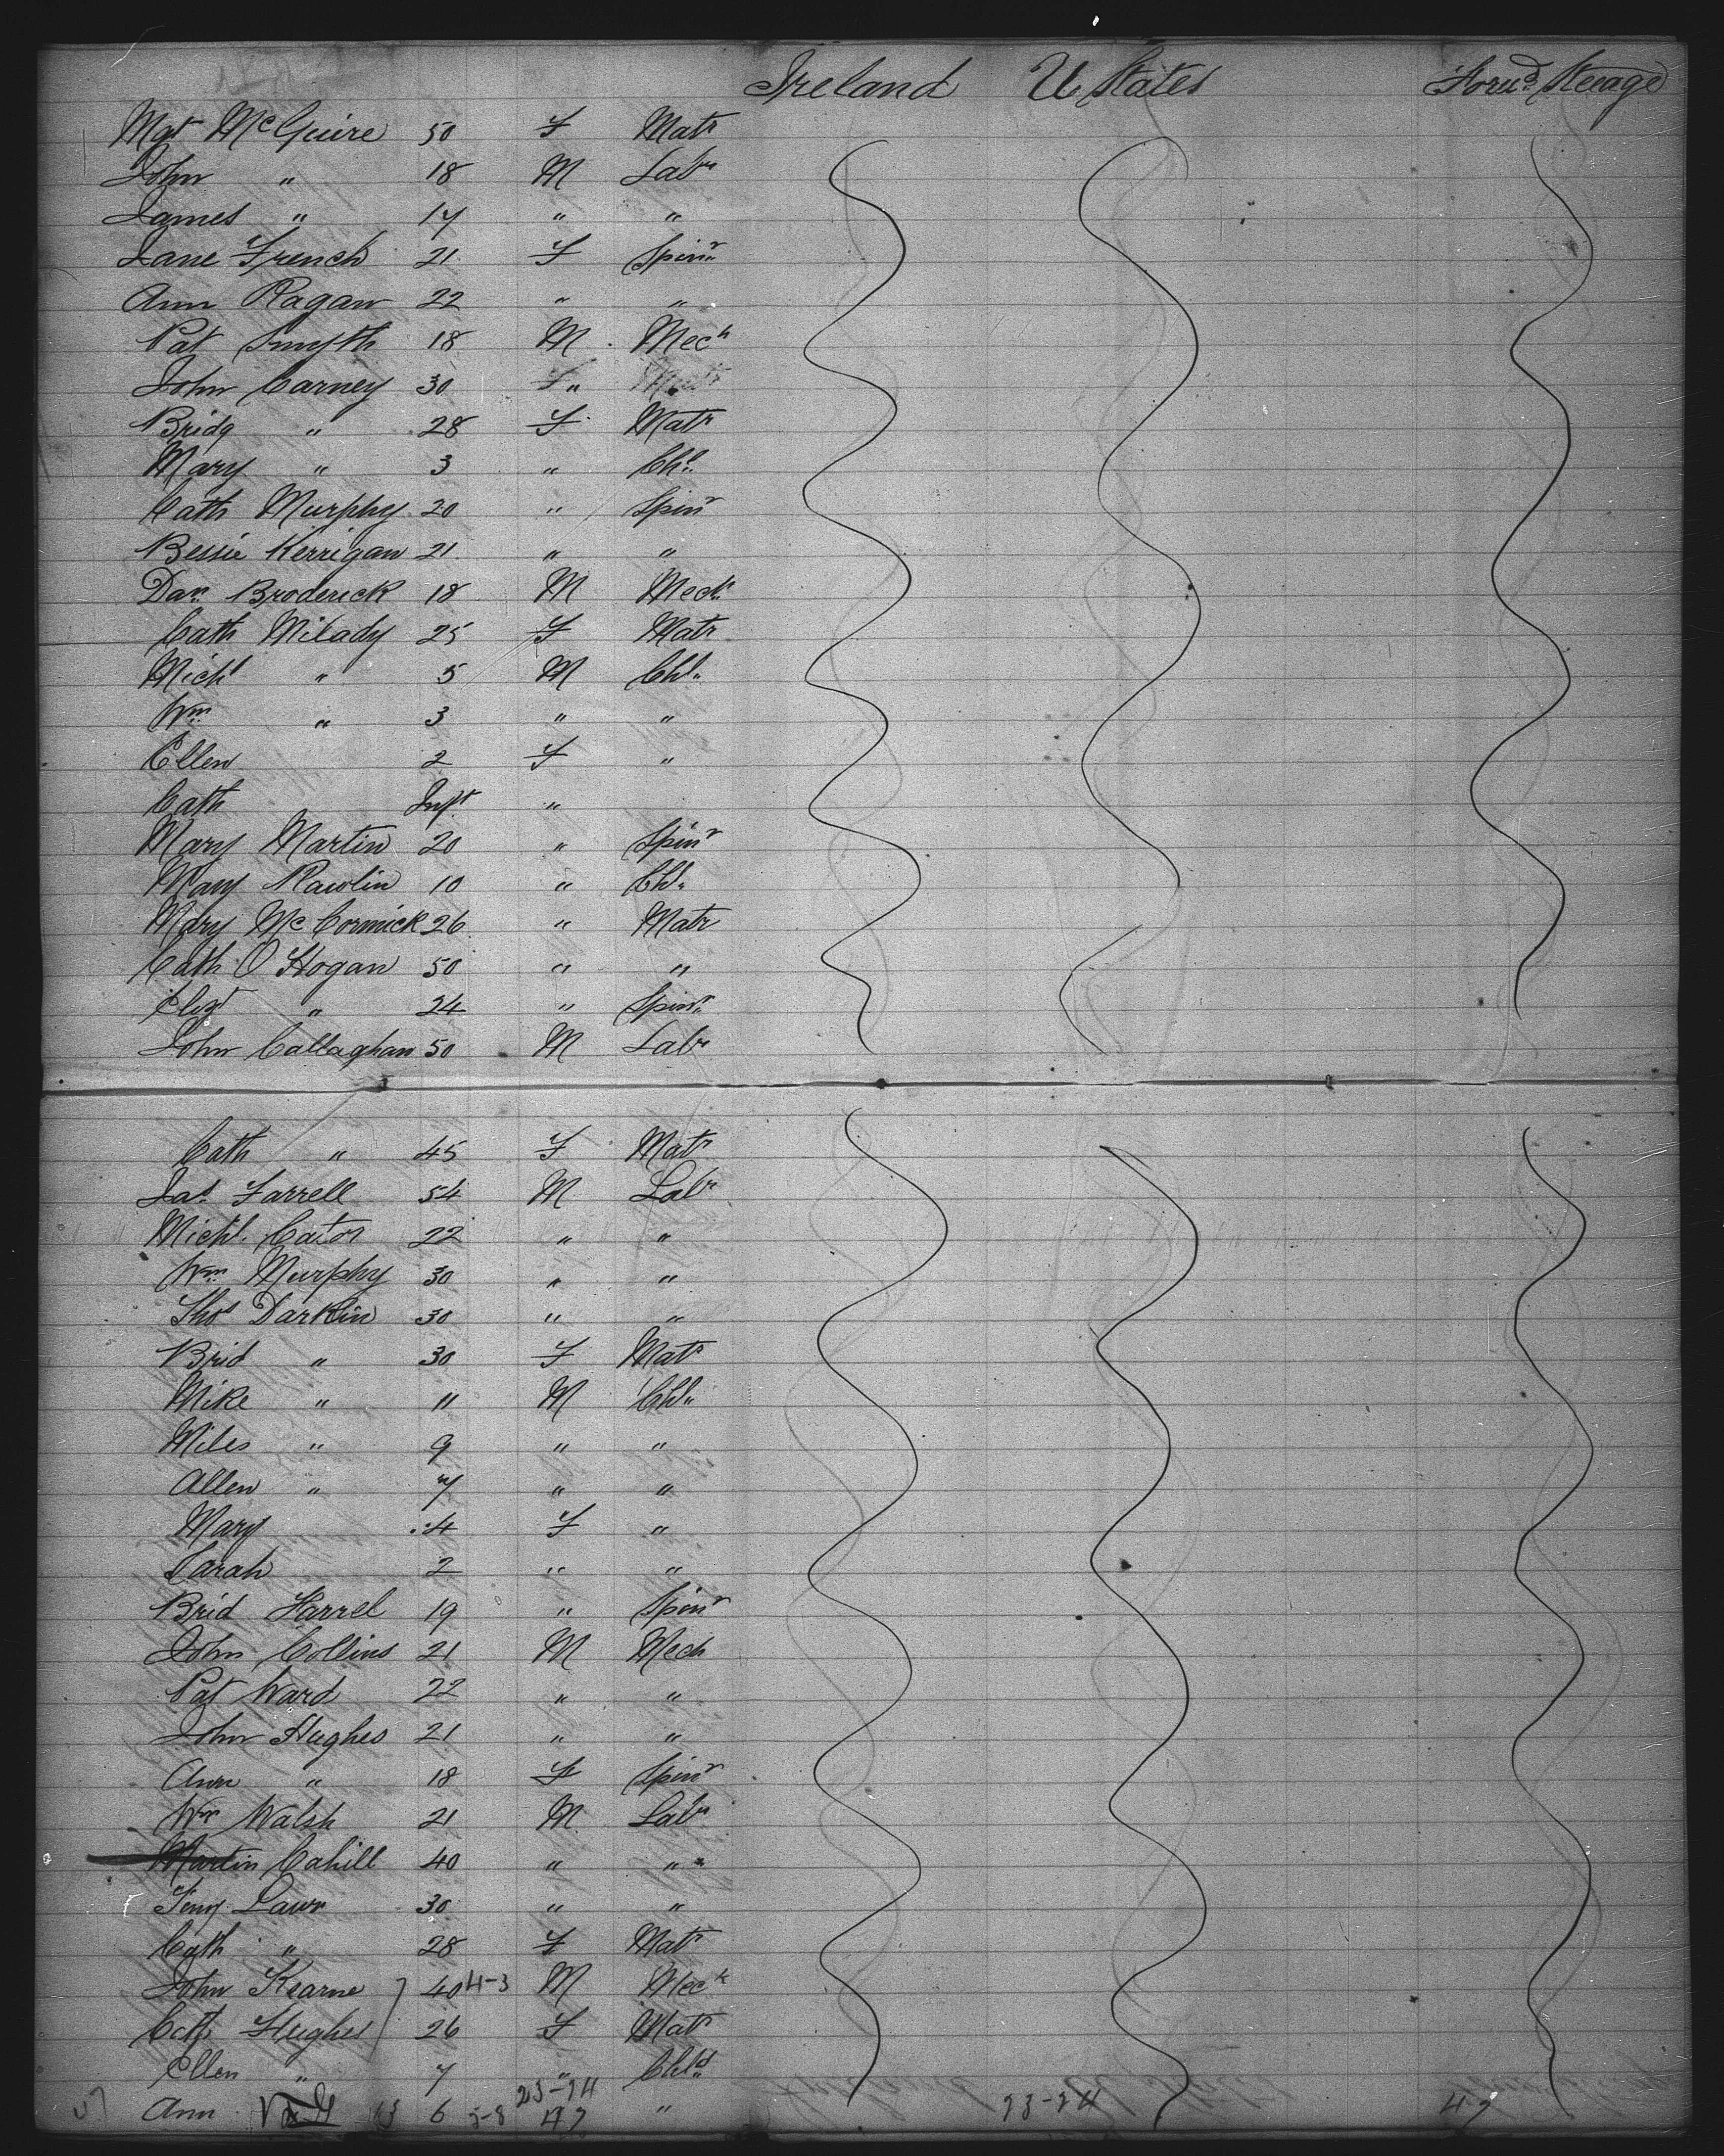 Ireland U States Forwd Steerage
Mgt McGuire 50 F Matr
John " 18 M Labr
James " 17 " "
Jane French 21 F Spinr
Ann Ragan 22 " "
Pat Smyth 18 M Mech
John Carney 30 "
Bridg " 28 F Matr
Mary " 3 " Chl
Cath Murphy 20 " Spinr
Bessie Kerrigan 21 " "
Dan Broderick 18 M Mech
Cath Milady 25 F Matr
Michl " 5 M Chl
Wm " 3 " "
Ellen 2 F "
Cath Inft "
Mary Martin 20 " Spinr
Mary Rawlin 10 " Chl
Mary McCormick 26 " Matr
Cath O Hogan 50 " "
Elizt " 24 " Spinr
John Callaghan 50 M Labr
Cath " 45 F Matr
Jas Farrell 54 M Labr
Michl Cator 22 " "
Wm Murphy 30 " "
Thos Darklin 30 " "
Brid " 30 F Matr
Mike " 11 M Chl
Miles " 9 " "
Allen " 7 " "
Mary 4 F "
Sarah 2 " "
Brid Harrel 19 " Spinr
John Collins 21 M Mech
Pat Ward 22 " "
John Hughes 21 " "
Ann " 18 F Spinr
Wm Walsh 21 M Labr
Martin Cahill 40 " "
Lawr 30 " "
Cath " 28 F Matr
John Kearne 40 4-3 M Mech
Cath Hughes 26 F Matr
Ellen " 7 " Chld
23-24
Ann 6 5-8 47 " 23-24 47